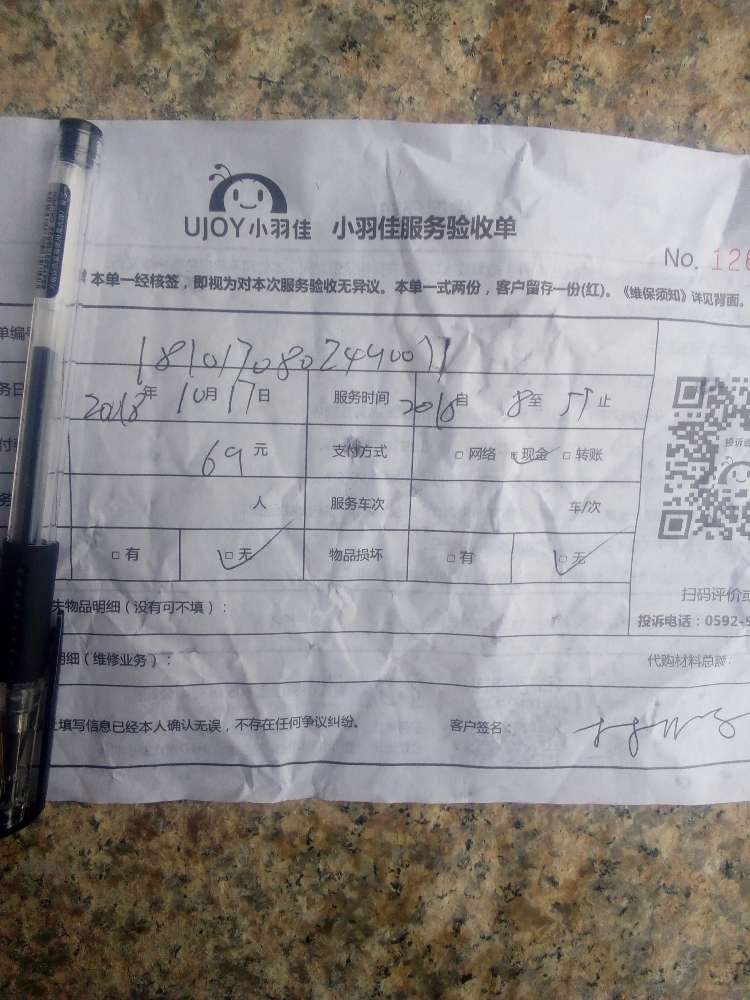 UJOY小羽佳 小羽佳服务验收单
No. 126
本单一经核签，即视为对本次服务验收无异议。本单一式两份，客户留存一份(红)。《维保须知》详见背面。
单编号
181017080244001
2018年10月17日 服务时间 自 8至 止
69元 支付方式 □网络 ☑现金 □转账
人 服务车次 车/次
□有 ☑无 物品损坏 □有 ☑无
扫码评价或
物品明细（没有可不填）：
投诉电话：0592-5
明细（维修业务）： 代购材料总额：
填写信息已经本人确认无误，不存在任何争议纠纷。 客户签名：